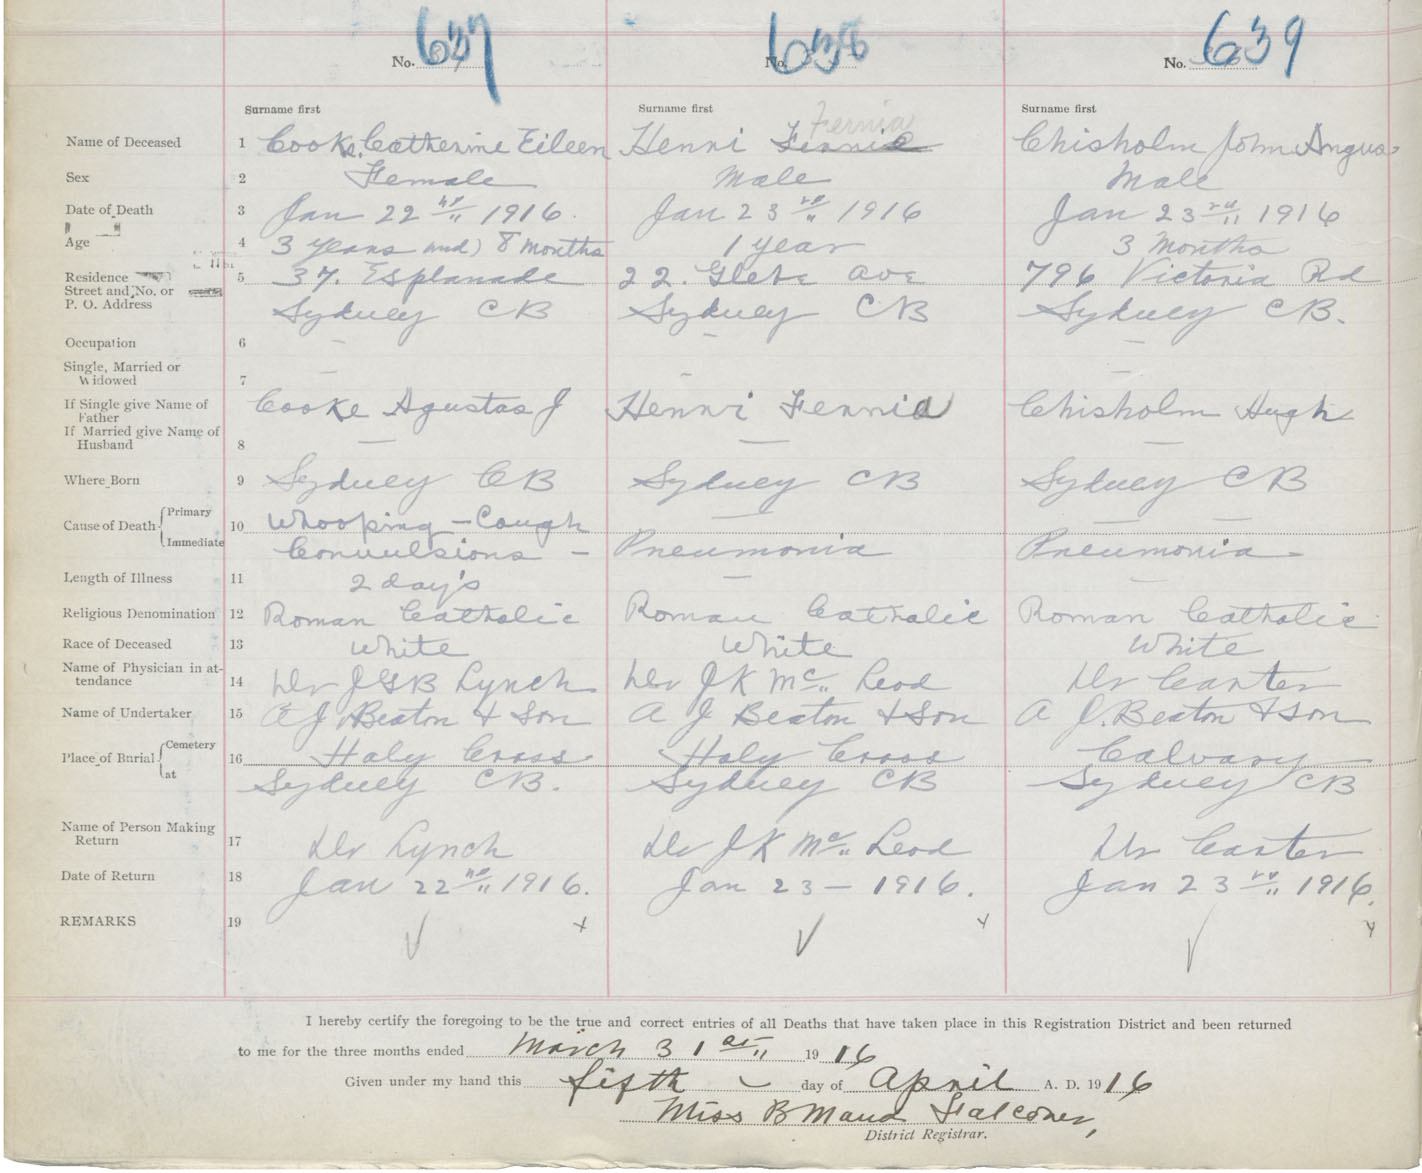 No. 637 No. 638 No. 639
Surname first Surname first Surname first
Fernia
Name of Deceased 1 Cooke, Catherine Eileen Henni Fennie Chisholm John Angus
Sex 2 Female Male Male
Date of Death 3 Jan 22nd 1916. Jan 23rd 1916 Jan 23rd 1916
Age 4 3 years and 8 months 1 year 3 Months
Residence 5 37. Esplanade 22. Glebe Ave 796 Victoria Rd
Street and No. or
P. O. Address Sydney CB Sydney CB Sydney CB.
Occupation 6 – – –
Single, Married or
Widowed 7 – – –
If Single give Name of
Father Cooke Agustas J Henni Fennia Chisholm Hugh
If Married give Name of
Husband 8 — — —
Where Born 9 Sydney CB Sydney CB Sydney CB
Cause of Death Primary 10 Whooping – Cough — — —
Immediate Convulsions – Pneumonia Pneumonia –
Length of Illness 11 2 day's –
Religious Denomination 12 Roman Catholic Roman Catholic Roman Catholic
Race of Deceased 13 White White White
Name of Physician in at-
tendance 14 Dr JGB Lynch Dr JK McLeod Dr Carter
Name of Undertaker 15 A J Beaton & Son A J Beaton & Son A J. Beaton & Son
Place of Burial Cemetery 16 Holy Cross Holy Cross Calvary
at Sydney CB. Sydney CB Sydney CB
Name of Person Making
Return 17 Dr Lynch Dr JK McLeod Dr Carter
Date of Return 18 Jan 22nd 1916. Jan 23 – 1916. Jan 23rd 1916.
REMARKS 19
I hereby certify the foregoing to be the true and correct entries of all Deaths that have taken place in this Registration District and been returned
to me for the three months ended March 31st 1916
Given under my hand this fifth day of April A. D. 1916
Miss B Maud Falconer,
District Registrar.